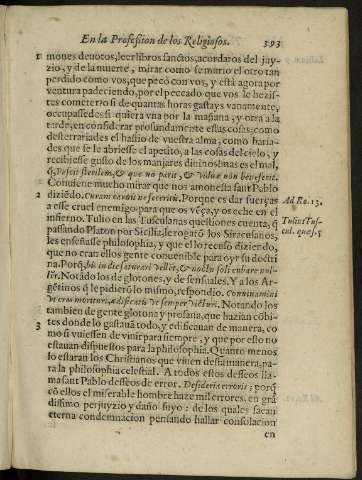 En la Profession de los Religiosos. 393
mones deuotos, leer libros sanctos, acordaros del juy-
zio, y de la muerte, mirar como se murio el otro tan
perdido como vos, que pecò con vos, y està agora por
ventura padeciendo, por el peccado que vos le hezis-
tes cometer: o si de quantas horas gastays vanamente,
occupassedes si quiera vna por la mañana, y otra a la
tarde, en considerar profundamente essas cosas: como
desterrariades el hastio de vuestra alma, como haria-
des que se le abriesse el apetito, a las cosas del cielo, y
recibiesse gusto de los manjares diuinos: mas es el mal,
q̃, Pascit sterilem, & quæ non parit, & viduæ non benefecit.
2 Conuiene mucho mirar que nos amonesta sant Pablo
diziẽdo. Curam carnis ne feceritis. Porque es dar fuerças
Ad Ro. 13.
a esse cruel enemigo para que os vẽça, y os eche en el
infierno. Tulio en las Tusculanas questiones cuenta, q̃
Tulius Tus-
cul. ques. 5
passando Platon por Sicilia, le rogarõ los Siracusanos,
les enseñasse philosophia, y que el lo recusò diziendo,
que no eran ellos gente conuenible para oyr su doctri
na. Porq̃, bis in die saturari vellẽt, & noctu soli cubare nol-
lẽt. Notado los de glotones, y de sensuales. Y a los Ar-
gẽtinos q̃ le pidierõ lo mismo, respondio. Conuinamini
ve cras morituri, ædificatis ve semper victuri. Notando los
tambien de gente glotona y profana, que hazian cõbi-
3 tes donde lo gastauã todo, y edificauan de manera, co
mo si vuiessen de viuir para siempre, y que por esto no
estauan dispuestos para la philosophia. Quanto menos
lo estaran los Christianos que viuen desta manera, pa-
ra la philosophia celestial. A todos estos desseos lla-
ma sant Pablo desseos de error. Desideria erroris; porq̃
cõ ellos el miserable hombre haze mil errores, en grã
dissimo perjuyzio y daño suyo: de los quales sacan
eterna condemnacion pensando hallar consolacion
en